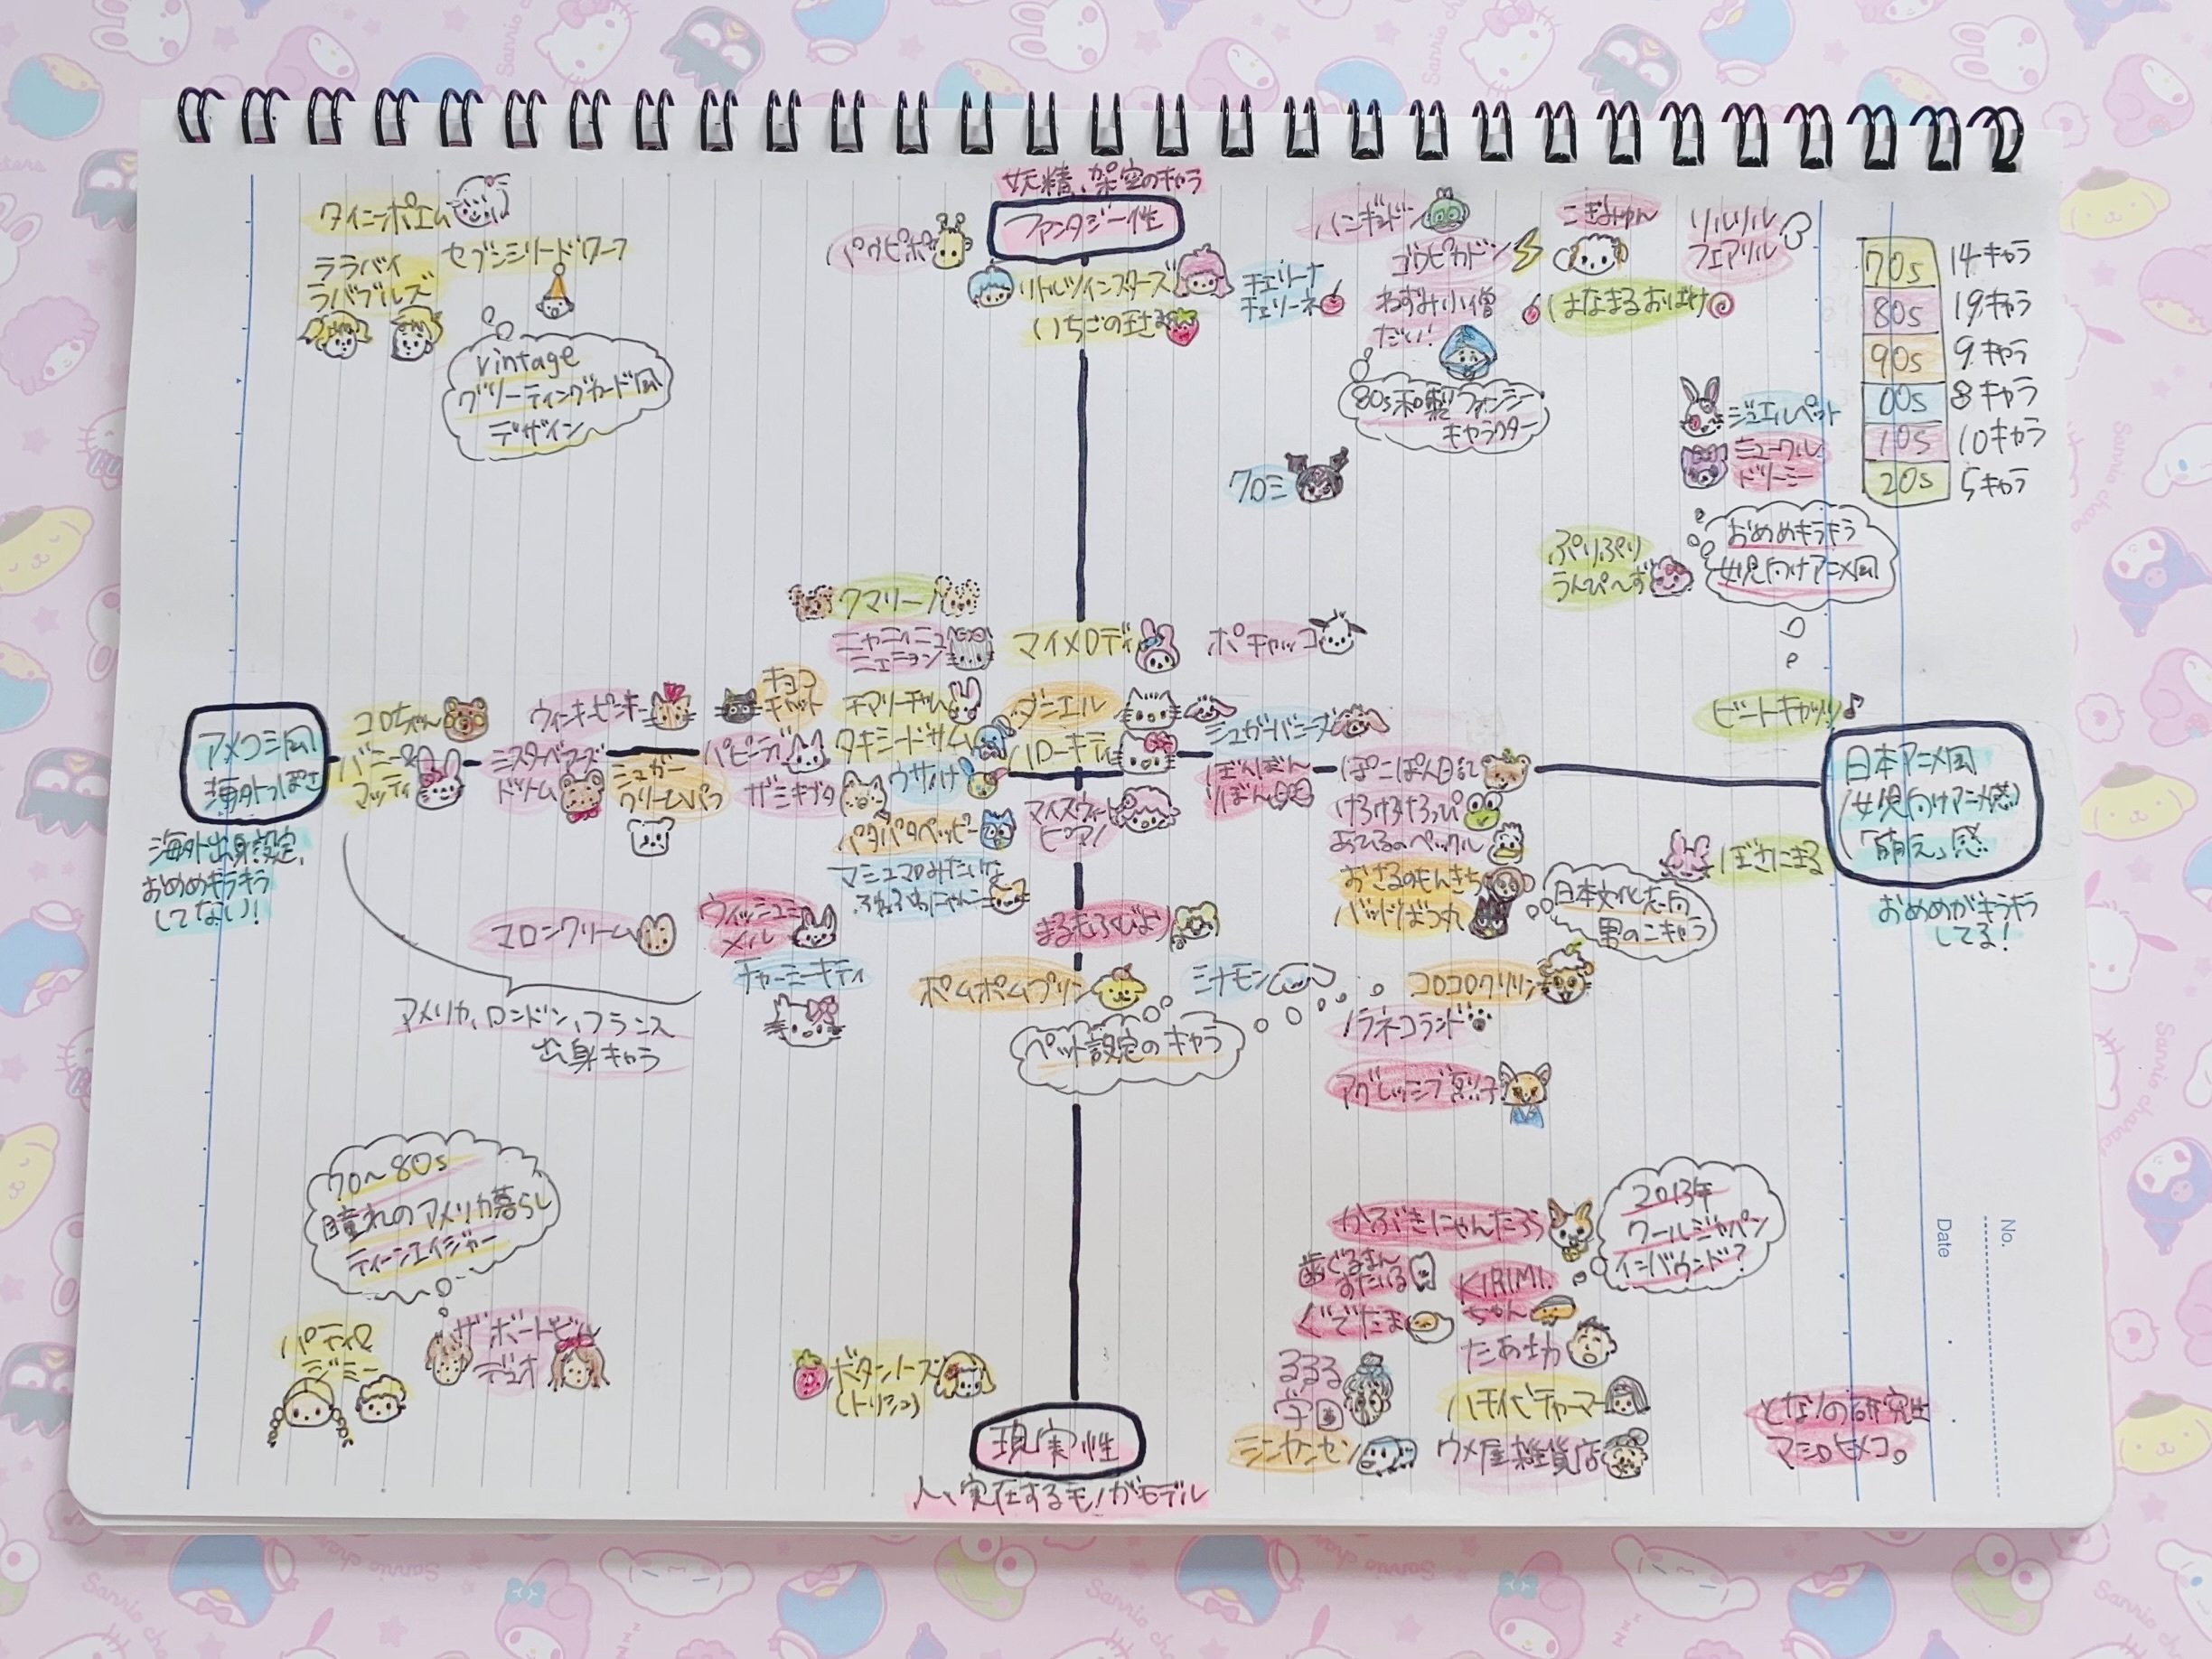 妖精、架空のキャラ
ファンタジー性
タイニーポエム
ララバイ
ラバブルズ
セブンシリードワーフ
vintage
グリーティングカード風
デザイン
パウピポ
リトルツインスターズ
いちごの王さま
チェリーナ
チェリーネ
ハンギョドン
ゴウピカドン
ねずみ小僧
だい!
80s和製ファンシー
キャラクター
こぎみゅん
はなまるおばけ
リルリル
フェアリル
70s 14キャラ
80s 19キャラ
90s 9キャラ
00s 8キャラ
10s 10キャラ
20s 5キャラ
ジュエルペット
ミュークル
ドリーミー
クロミ
おめめキラキラ
女児向けアニメ風
ぷりぷり
うんぴ〜ず
クマリーノ
ニャニィニュ
ニェニョン
マイメロディ
ポチャッコ
アメコミ風
海外っぽさ
海外出身設定、
おめめキラキラ
してない!
コロちゃん
バニー&
マッティ
ウィンキーピンキー
ミスタベアーズ
ドリーム
シュガー
クリームパフ
チョコ
キャット
パピーディ
ザシキブタ
チアリーチャム
タキシードサム
ウサハナ
パタパタペッピー
マシュマロみたいな
ふわふわにゃんこ
ダニエル
ハローキティ
マイスウィート
ピアノ
シュガーバニーズ
ぼんぼん
りぼん
ぽこぽん日記
けろけろけろっぴ
あひるのペックル
おさるのもんきち
バッドばつ丸
日本文化志向
男のコキャラ
ビートキャッツ♪
日本アニメ風
(女児向けアニメ感)
「萌え」感
おめめがキラキラ
してる!
ぼさにまる
マロンクリーム
ウィッシュミー
メル
チャーミーキティ
まるもふびより
ポムポムプリン
シナモン
ペット設定のキャラ
コロコロクリリン
ノラネコランド
アグレッシブ烈子
アメリカ、ロンドン、フランス
出身キャラ
70〜80s
憧れのアメリカ暮らし
ティーンエイジャー
パティ&
ジミー
ザ ボードビル
デュオ
ボタンノーズ
(トリシュ)
現実性
人、実在するモノがモデル
かぶきにゃんたろう
歯ぐるまん
すたいる
ぐでたま
KIRIMI.
ちゃん
たあ坊
るるる
学園
ハチバチャーマー
シンカンセン
ウメ屋雑貨店
2013年
クールジャパン
インバウンド?
となりの研究生
マシロヒメコ。
No.
Date